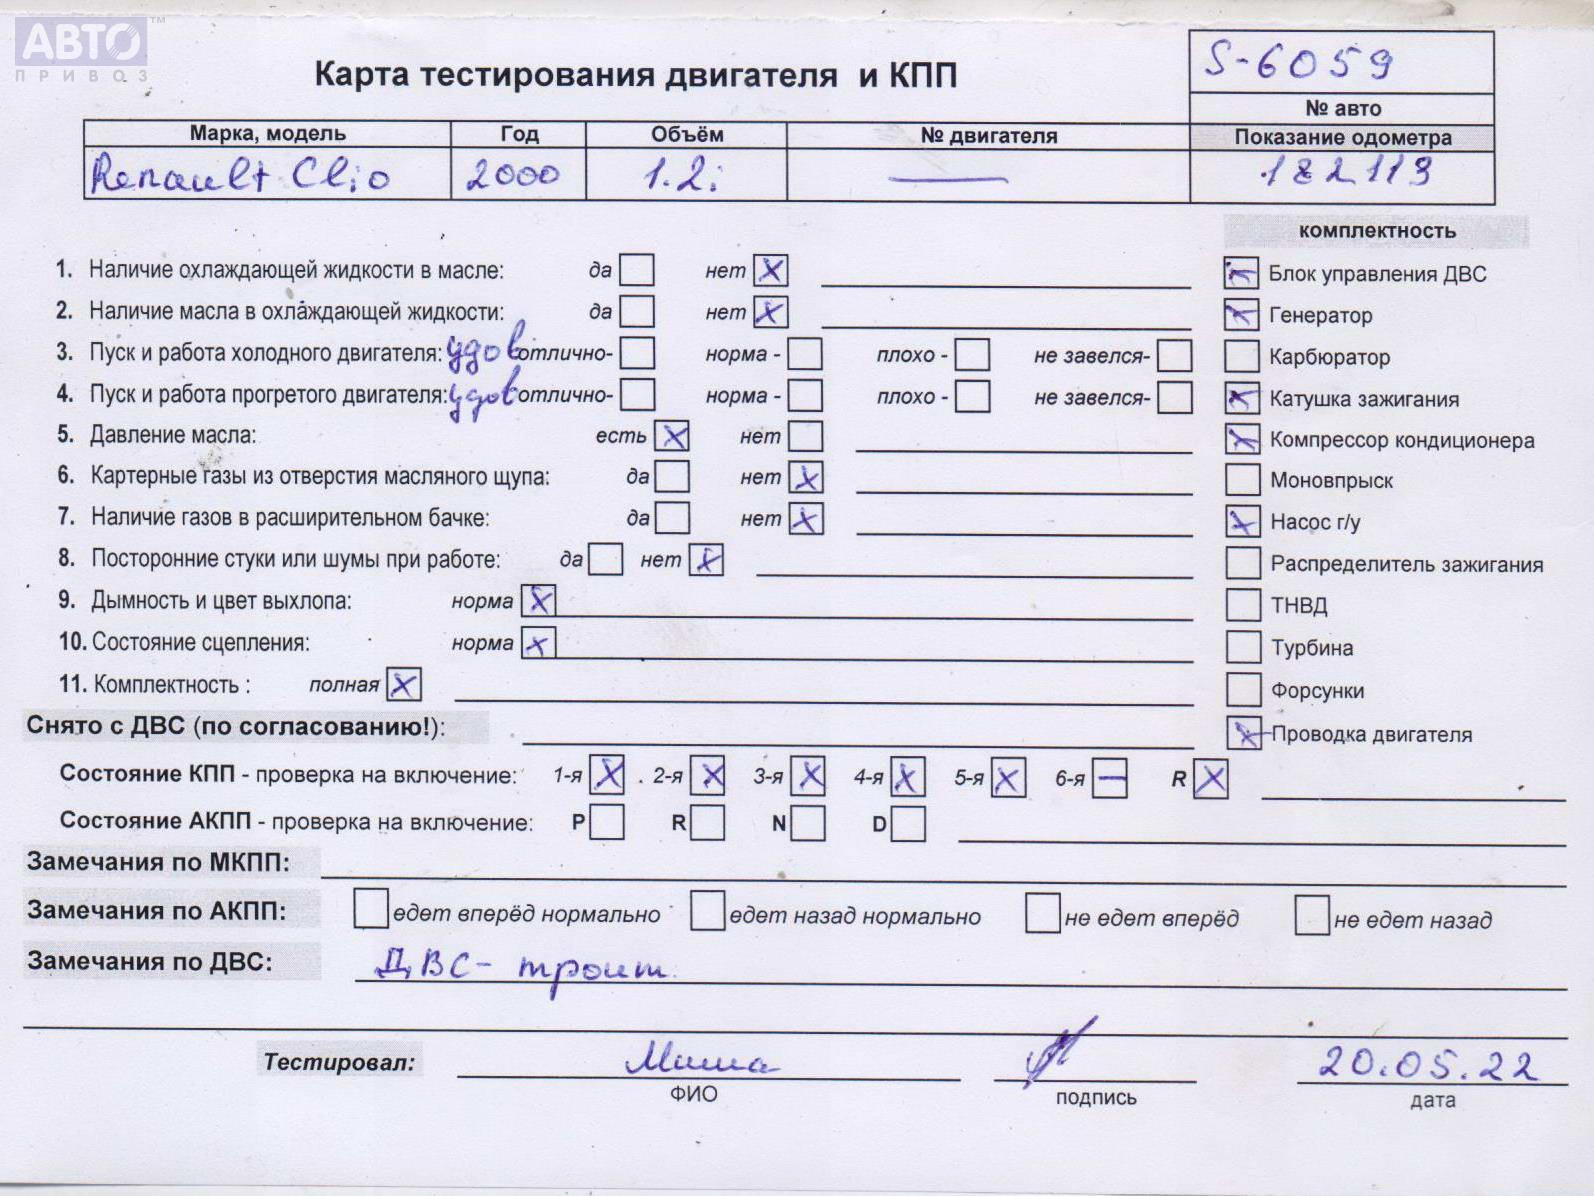 АВТО™
ПРИВОЗ
Карта тестирования двигателя и КПП
S-6059
№ авто
Марка, модель Год Объём № двигателя Показание одометра
Renault Clio 2000 1.2i — 182119
комплектность
1. Наличие охлаждающей жидкости в масле: да нет X Блок управления ДВС
2. Наличие масла в охлаждающей жидкости: да нет X Генератор
3. Пуск и работа холодного двигателя: удов отлично- норма - плохо - не завелся- Карбюратор
4. Пуск и работа прогретого двигателя: удов отлично- норма - плохо - не завелся- Катушка зажигания
5. Давление масла: есть X нет Компрессор кондиционера
6. Картерные газы из отверстия масляного щупа: да нет X Моновпрыск
7. Наличие газов в расширительном бачке: да нет X Насос г/у
8. Посторонние стуки или шумы при работе: да нет X Распределитель зажигания
9. Дымность и цвет выхлопа: норма X ТНВД
10. Состояние сцепления: норма X Турбина
11. Комплектность : полная X Форсунки
Снято с ДВС (по согласованию!): Проводка двигателя
Состояние КПП - проверка на включение: 1-я X 2-я X 3-я X 4-я X 5-я X 6-я — R X
Состояние АКПП - проверка на включение: P R N D
Замечания по МКПП:
Замечания по АКПП: едет вперёд нормально едет назад нормально не едет вперёд не едет назад
Замечания по ДВС: ДВС - троит
Тестировал: Миша 20.05.22
ФИО подпись дата